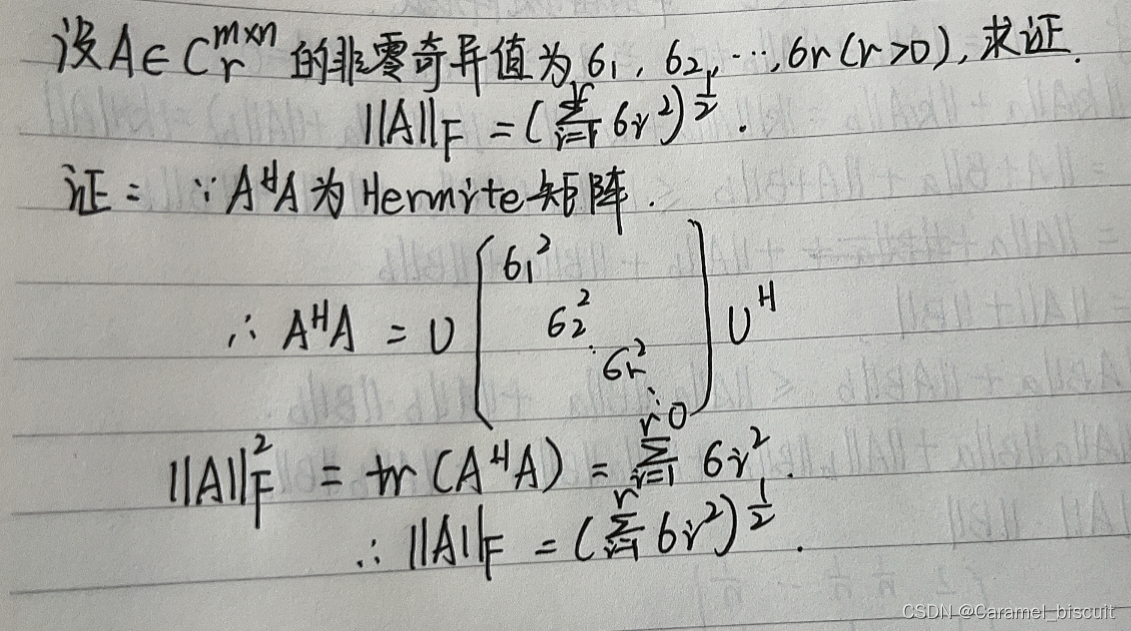 设A∈C_r^{m×n} 的非零奇异值为 σ₁, σ₂, ⋯, σr (r>0), 求证.
‖A‖_F = (∑_{i=1}^{r} σi²)^{1/2}.
证: ∵ A^H A 为 Hermite 矩阵.
∴ A^H A = U [ σ₁² σ₂² ⋱ σr² ⋱ 0 ] U^H
‖A‖_F² = tr (A^H A) = ∑_{i=1}^{r} σi².
∴ ‖A‖_F = (∑_{i=1}^{r} σi²)^{1/2}.
CSDN @Caramel_biscuit